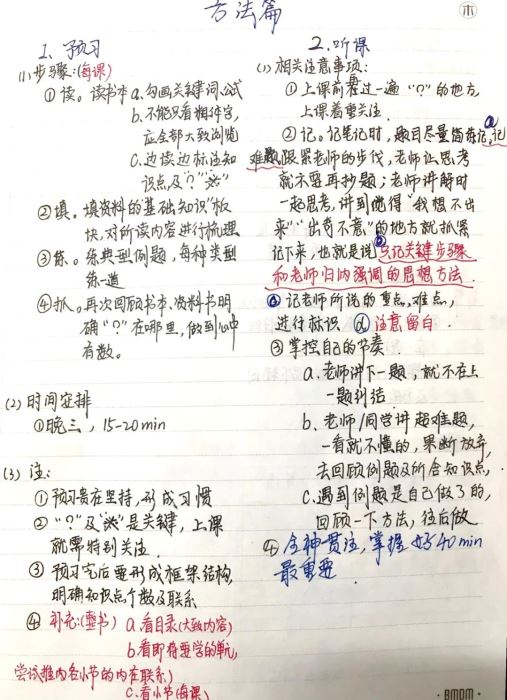 方法篇
1. 预习
(1)步骤:(每课)
①读。读书本 a.勾画关键词、公式
b.不能只看粗体字,
应全部大致浏览
c.边读边标注知
识点及"?""※"
②填。填资料的基础知识"板
块,对所读内容进行梳理
③练。练典型例题,每种类型
练一道
④抓。再次回顾书本、资料书明
确"?"在哪里,做到心中
有数。
(2)时间安排
①晚三,15-20min
(3)注:
①预习贵在坚持,形成习惯
②"?"及"※"是关键,上课
就需特别关注.
③预习完后要形成框架结构,
明确知识点个数及联系
④补充:(整书) a.看目录(大致内容)
b.看即将要学的单元,
尝试推内各小节的内在联系)
c.看小节(每课)
2.听课
(1)相关注意事项:
①上课前看过一遍"?"的地方,
上课着重关注.
②记。记笔记时,题目尽量简练记,a记
难题,跟紧老师的步伐,老师让思考
就不要再抄题;老师讲解时
一起思考,讲到觉得"我想不出
来""出奇不意"的地方就抓紧
记下来,也就是说b只记关键步骤
和老师归纳强调的思想方法
c记老师所说的重点,难点,
进行标识 d注意留白.
③掌控自己的节奏
a.老师讲下一题,就不在上
一题纠结
b.老师/同学讲超难题,
一看就不懂的,果断放弃,
去回顾例题及所含知识点,
c.遇到例题是自己做了的,
回顾一下方法,往后做
④全神贯注,掌握好40min
最重要
BMDM